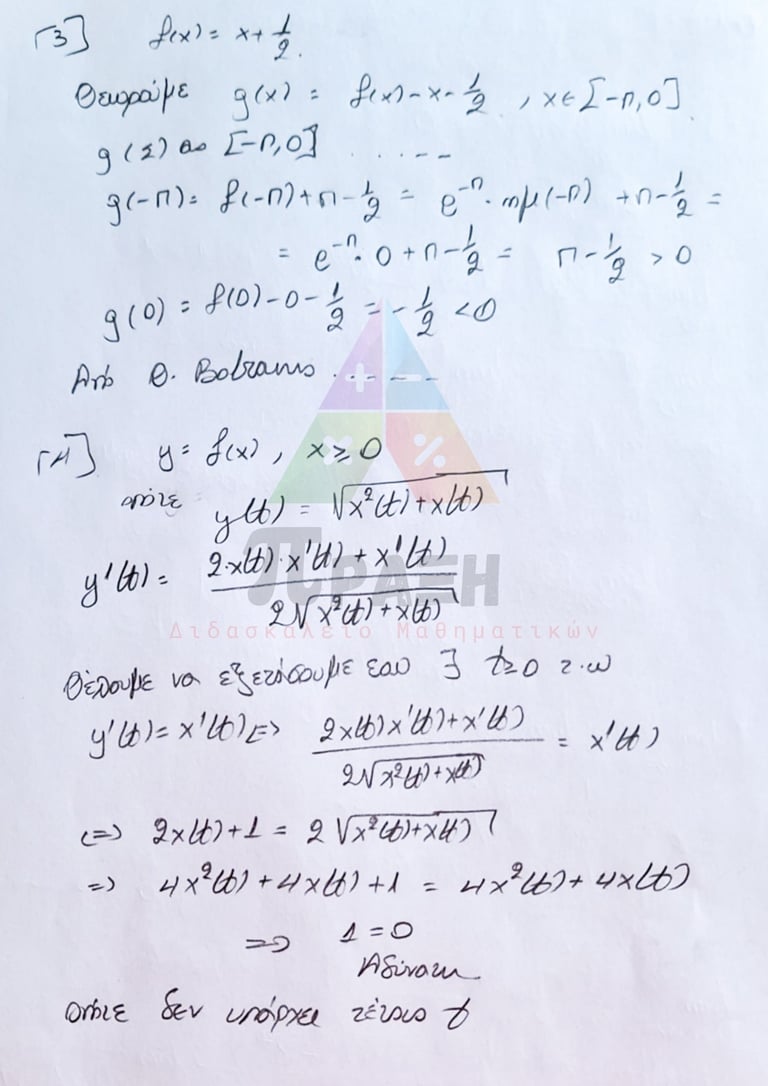 Γ3] f(x) = x + 1/2.
Θεωρούμε g(x) = f(x) - x - 1/2 , x ∈ [-π, 0].
g (Σ) στο [-π, 0] . . . . --
g(-π) = f(-π) + π - 1/2 = e^-π · ημ(-π) + π - 1/2 =
= e^-π · 0 + π - 1/2 = π - 1/2 > 0
g(0) = f(0) - 0 - 1/2 = - 1/2 < 0
Από Θ. Bolzano . . . - - -
Γ4] y = f(x) , x ≥ 0
οπότε y(t) = √(x²(t) + x(t))
y'(t) = (2·x(t)·x'(t) + x'(t)) / (2√(x²(t) + x(t)))
ΠΡΑΞΗ
Διδασκαλείο Μαθηματικών
Θέλουμε να εξετάσουμε εαν ∃ t≥0 τ.ω
y'(t) = x'(t) <=> (2x(t)x'(t) + x'(t)) / (2√(x²(t) + x(t))) = x'(t)
<=> 2x(t) + 1 = 2√(x²(t) + x(t))
=> 4x²(t) + 4x(t) + 1 = 4x²(t) + 4x(t)
=> 1 = 0
Αδύνατη
οπότε δεν υπάρχει τέτοιο t